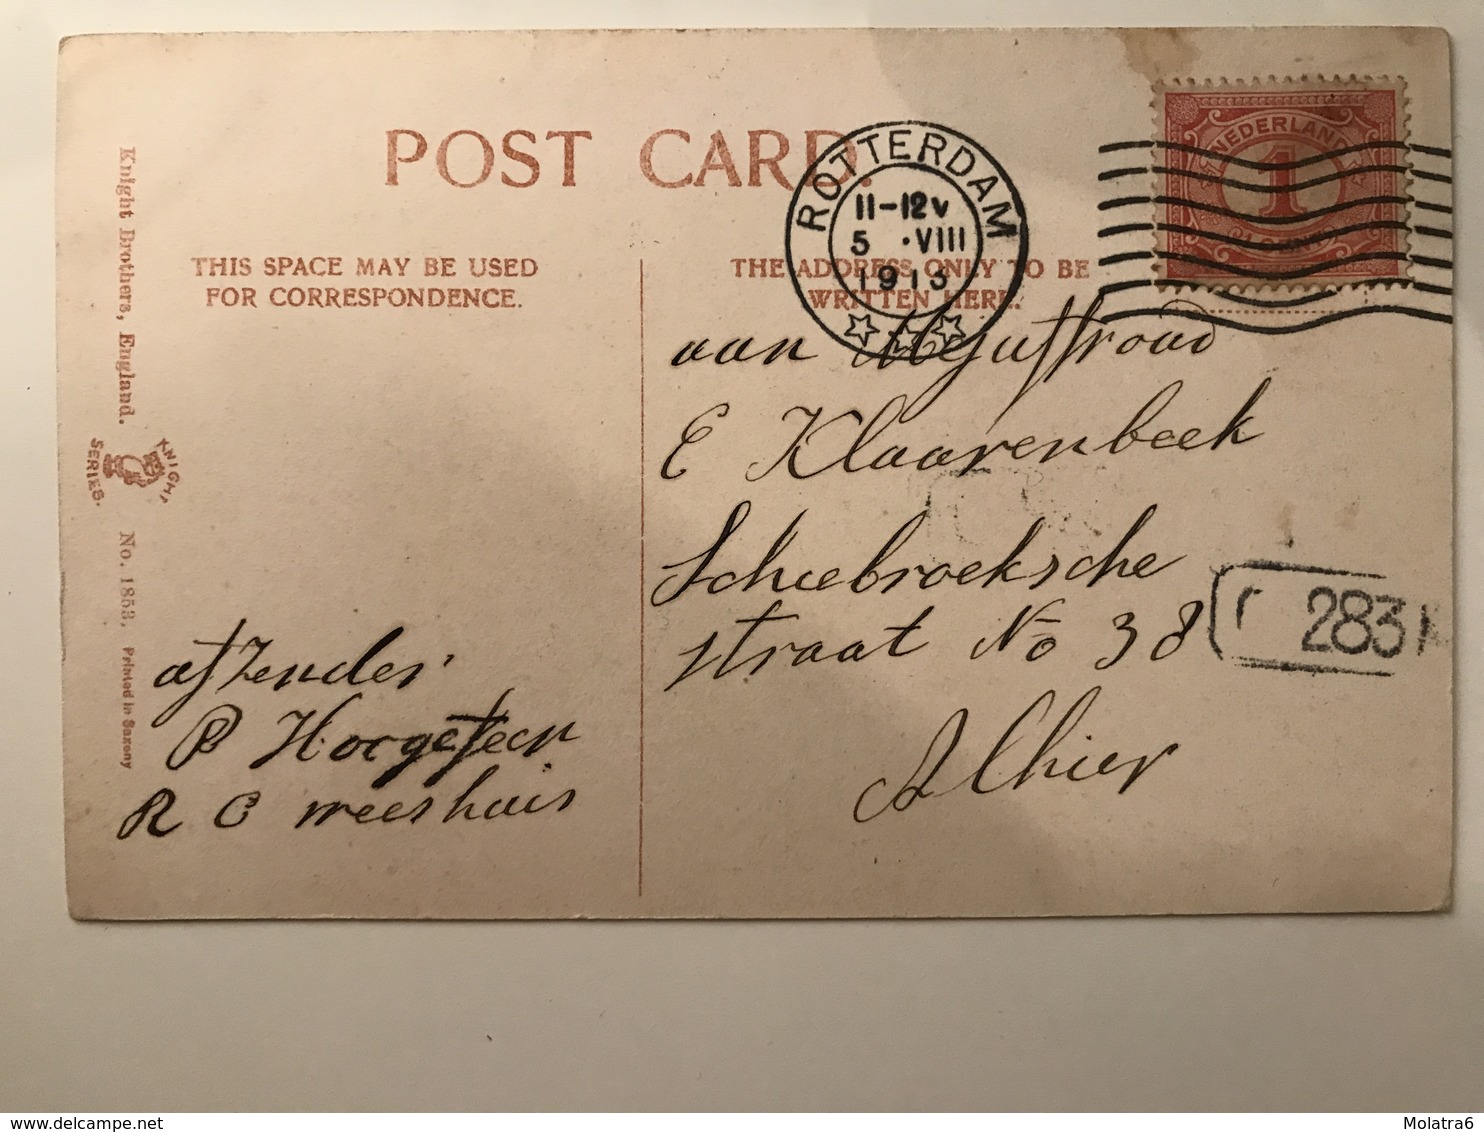 POST CARD.
THIS SPACE MAY BE USED
FOR CORRESPONDENCE.
THE ADDRESS ONLY TO BE
WRITTEN HERE.
ROTTERDAM
11-12V
5 .VIII
1913
NEDERLAND
1
CENT
aan Mejuffrouw
E Klaarenbeek
Schiebroeksche
straat No 38
Alhier
283
afzender
P Hoogeteen
R C weeshuis
Knight Brothers, England.
KNIGHT
SERIES.
No. 1853. Printed in Saxony
Molatra6